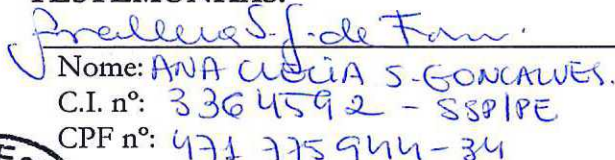 TESTEMUNHAS:
Nome: ANA CLÉCIA S. GONCALVES.
C.I. nº: 3364592 - SSP/PE
CPF nº: 471 775944-34